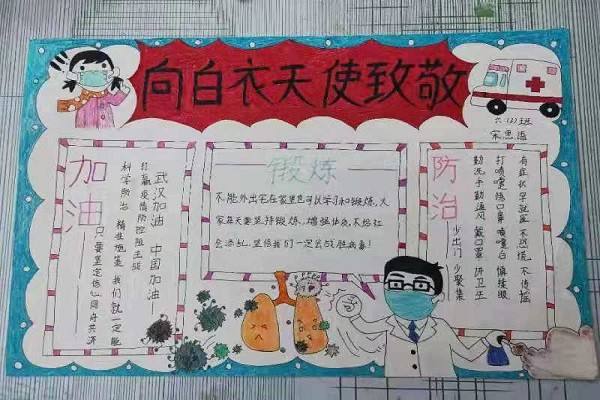 向白衣天使致敬
六
班
加油——只要坚定信心同舟共济
科学防治 精准施策 我们就一定能
打赢疫情防控阻击战
武汉加油 中国加油——
锻炼
不能外出宅在家里也可以学习和锻炼,大
家每天要坚持锻炼,增强体质,不给社
会添乱,坚信我们一定会战胜病毒!
防治——少出门 少聚集
勤洗手勤通风 戴口罩 讲卫生
打喷嚏捂口鼻 喷嚏后 慎揉眼
有症状早就医 不恐慌 不传谣